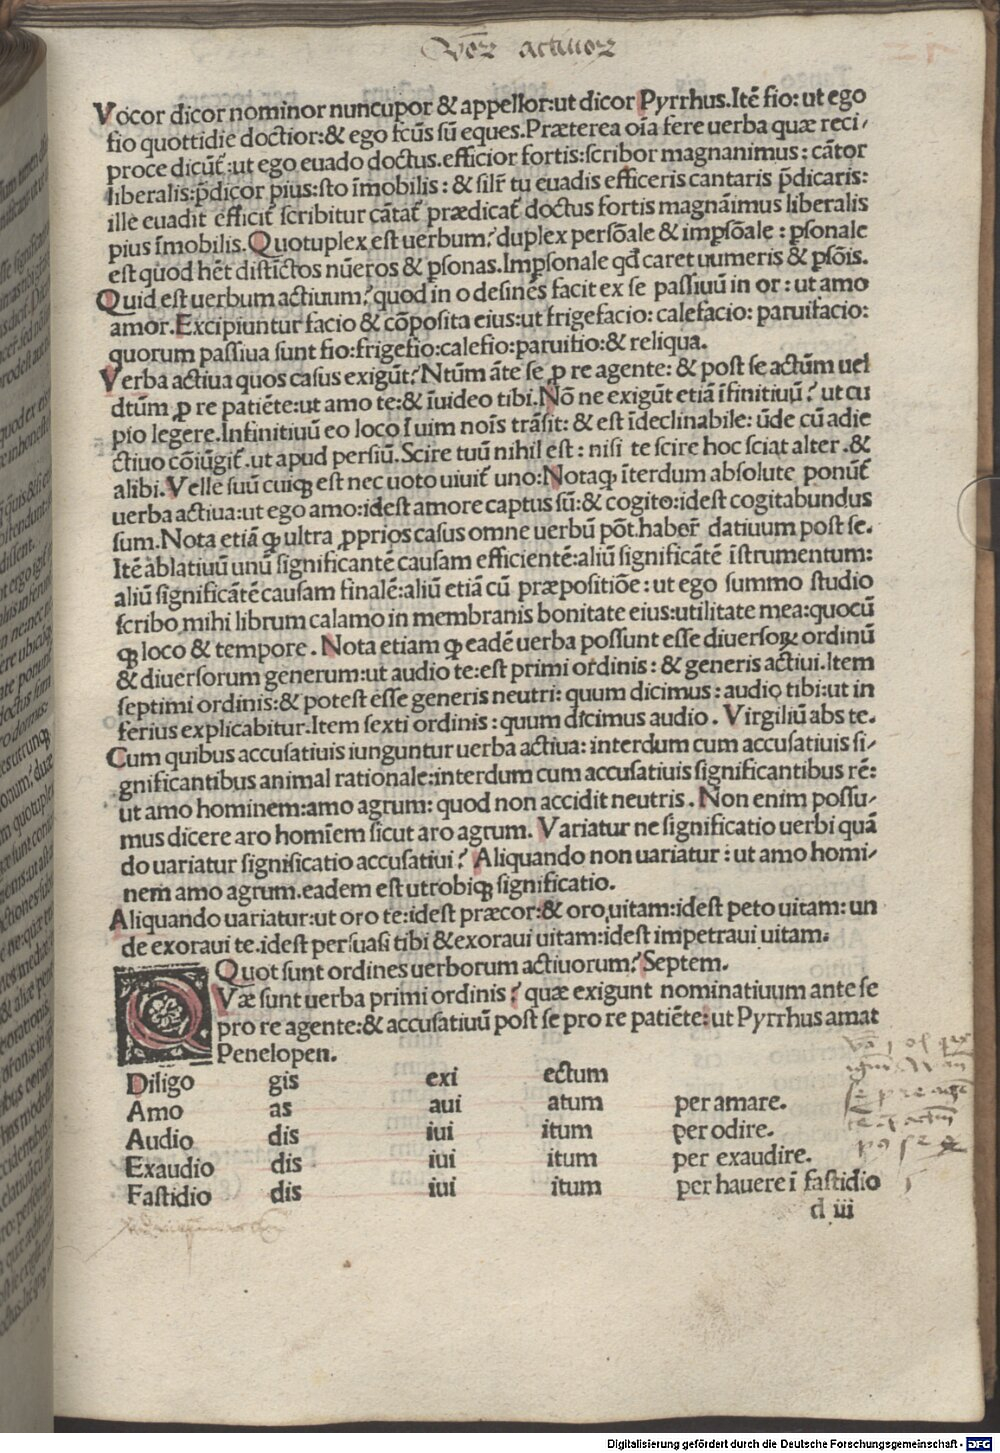 Vocor dicor nominor nuncupor & appellor:ut dicor Pyrrhus.Itē fio: ut ego
fio quottidie doctior:& ego fcūs sū eques.Præterea oīa fere uerba quæ reci/
proce dicūt̄:ut ego euado doctus.efficior fortis:scribor magnanimus: cātor
liberalis:p̄dicor pius:sto īmobilis: & silr̄ tu euadis efficeris cantaris p̄dicaris:
ille euadit efficit̄ scribitur cātat̄ prædicat̄ doctus fortis magnāimus liberalis
pius īmobilis.Quotuplex est uerbum? duplex persōale & impsōale: psonale
est quod hēt distīctos nūeros & psonas.Impersonale qd̄ caret uumeris & psōis.
Quid est uerbum actiuum? quod in o desinēs facit ex se passiuū in or: ut amo
amor.Excipiuntur facio & cōposita eius:ut frigefacio: calefacio: paruifacio:
quorum passiua sunt fio:frigefio:calefio:paruifio:& reliqua.
Verba actiua quos casus exigūt? Ntūm āte se ꝓ re agente: & post se actūm uel
dtūm ꝓ re patiēte:ut amo te:& īuideo tibi.Nō ne exigūt etiā īfinitiuū? ut cu
pio legere.Infinitiuū eo loco ī uim noīs trāsit: & est īdeclinabile: ūde cū adie
ctiuo cōiūgit̄.ut apud persiū.Scire tuū nihil est: nisi te scire hoc sciat alter.&
alibi.Velle suū cuiqꝫ est nec uoto uiuit̄ uno:Notaꝙ īterdum absolute ponūt̄
uerba actiua:ut ego amo:idest amore captus sū:& cogito:idest cogitabundus
sum.Nota etiā ꝙ ultra ꝓprios casus omne uerbū pōt.haber̄ datiuum post se.
Itē ablatiuū unū significantē causam efficientē:aliū significātē īstrumentum:
aliū significātē causam finalē:aliū etiā cū præpositiōe: ut ego summo studio
scribo mihi librum calamo in membranis bonitate eius:utilitate mea:quocū
qꝫ loco & tempore. Nota etiam ꝙ eadē uerba possunt esse diuersoꝝ ordinū
& diuersorum generum:ut audio te:est primi ordinis: & generis actiui.Item
septimi ordinis:& potest esse generis neutri: quum dicimus: audio tibi:ut in
ferius explicabitur.Item sexti ordinis: quum dicimus audio. Virgiliū abs te.
Cum quibus accusatiuis iunguntur uerba actiua: interdum cum accusatiuis si/
gnificantibus animal rationale:interdum cum accusatiuis significantibus rē:
ut amo hominem:amo agrum: quod non accidit neutris. Non enim possu/
mus dicere aro homīem sicut aro agrum. Variatur ne significatio uerbi quā
do uariatur significatio accusatiui? Aliquando non uariatur: ut amo homi/
nem amo agrum.eadem est utrobiqꝫ significatio.
Aliquando uariatur:ut oro te:idest præcor:& oro,uitam:idest peto uitam: un
de exoraui te.idest persuasi tibi & exoraui uitam:idest impetraui uitam.
Quot sunt ordines uerborum actiuorum? Septem.
QVæ sunt uerba primi ordinis? quæ exigunt nominatiuum ante se
pro re agente:& accusatiuū post se pro re patiēte: ut Pyrrhus amat
Penelopen.
Diligo gis exi ectum
Amo as aui atum per amare.
Audio dis iui itum per odire.
Exaudio dis iui itum per exaudire.
Fastidio dis iui itum per hauere ī fastidio
d iii
Digitalisierung gefördert durch die Deutsche Forschungsgemeinschaft - DFG